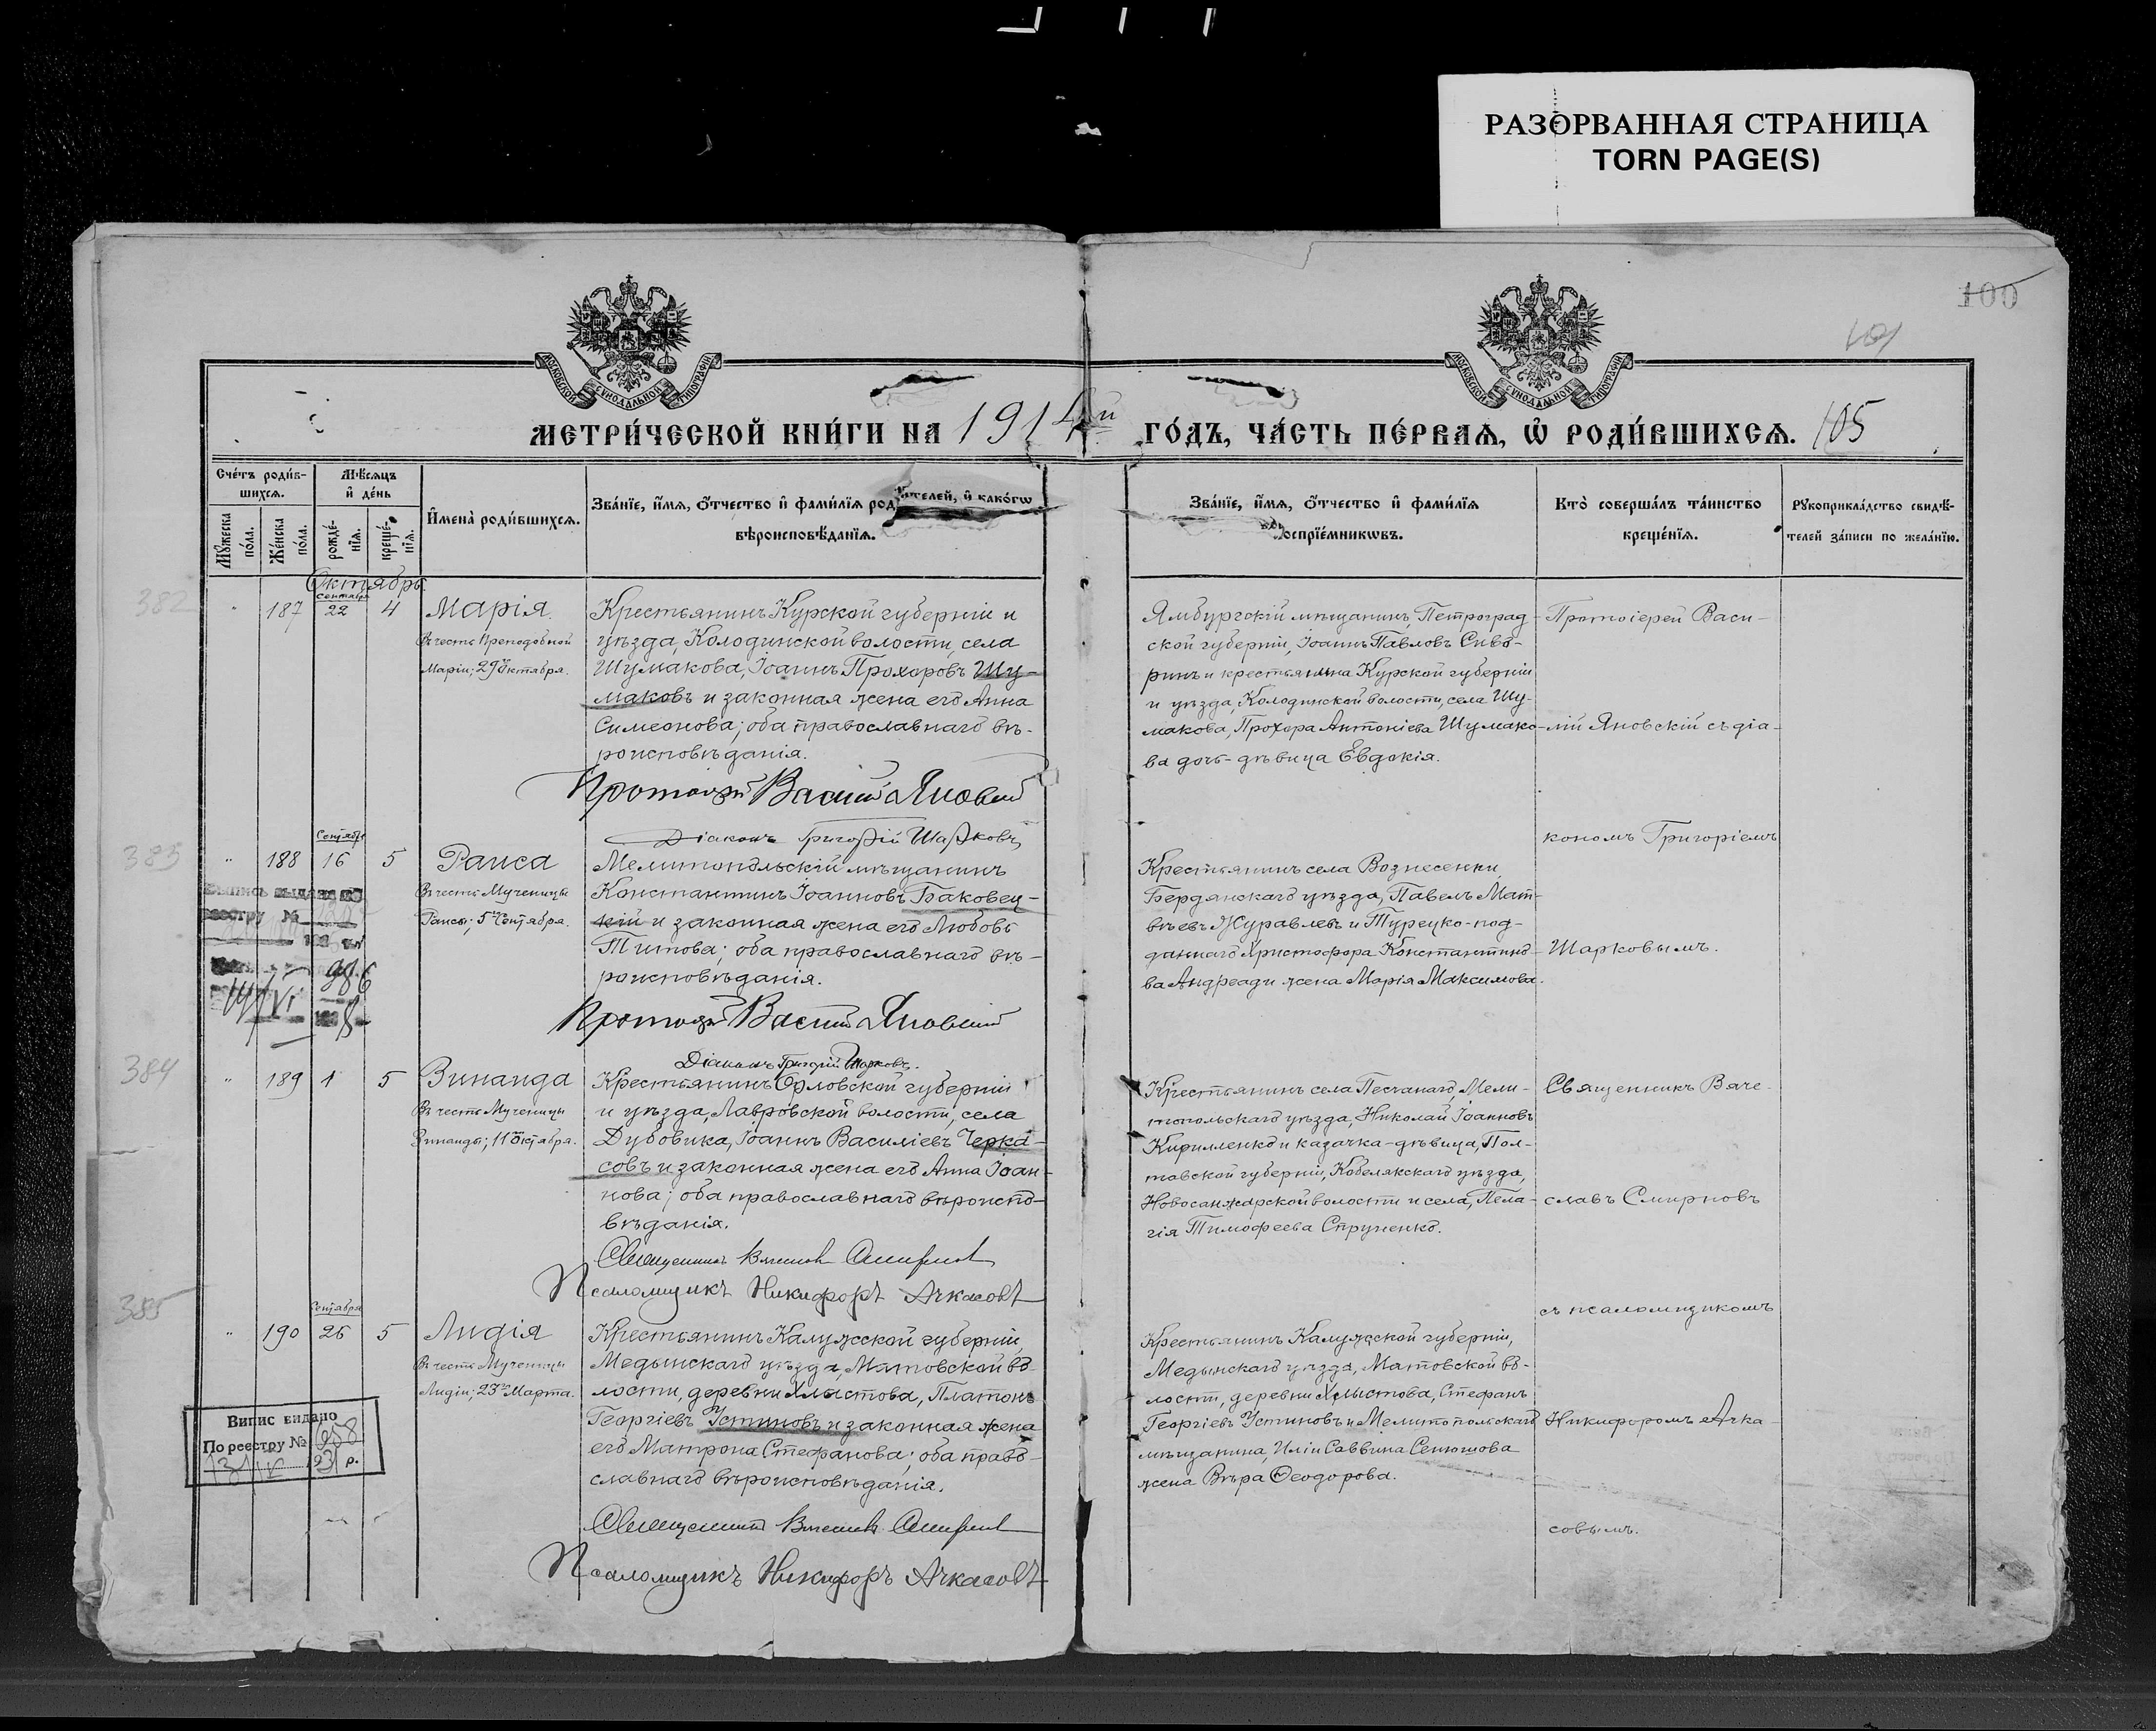 РАЗОРВАННАЯ СТРАНИЦА
TORN PAGE(S)
100
105
МЕТРИ́ЧЕСКОЙ КНИ́ГИ НА 1914й ГО́ДЪ, ЧА́СТЬ ПЕ́РВАЯ, Ѡ҆ РОДИ́ВШИХСЯ.
Сче́тъ роди́в-
шихся.
Мꙋ́жеска по́ла.
Же́нска по́ла.
Мѣ́сяцъ и҆ де́нь
рожде́-нїя.
креще́-нїя.
И҆мена̀ роди́вшихся.
Зва́нїе, и҆́мя, ѻ҆́тчество и҆ фами́лїя роди́телей, и҆ како́гѡ
вѣроисповѣ́данїя.
Зва́нїе, и҆́мя, ѻ҆́тчество и҆ фами́лїя
воспрїе́мникѡвъ.
Кто̀ соверша́лъ та́инство
креще́нїя.
Рꙋкоприкла́дство свидѣ́-
телей за́писи по жела́нїю.
Октябрь
382
" 187
Сентябр.
22
4
Марія.
Въ честь Преподобной
Маріи; 29го Октября.
Крестьянинъ Курской губерніи и
уѣзда, Колодинской волости, села
Шумакова, Іоаннъ Прохоровъ Шу-
маковъ и законная жена его Анна
Симеонова; оба православнаго вѣ-
роисповѣданія.
Протоіерей Василій Яновскій
Діаконъ Григорій Шарковъ
Ямбургскій мѣщанинъ, Петроград-
ской губерніи, Іоаннъ Павловъ Сиво-
ринъ и крестьянина Курской губерніи
и уѣзда, Колодинской волости, села Шу-
макова, Прохора Антоніева Шумако-
ва дочь-дѣвица Евдокія.
Протоіерей Васи-
лій Яновскій съ діа-
кономъ Григоріемъ
Шарковымъ.
383
" 188
Сентября
16
5
Раиса
Въ честь Мученицы
Раисы; 5го Сентября.
986
Мелитопольскій мѣщанинъ
Константинъ Іоанновъ Баковец-
кій и законная жена его Любовь
Титова; оба православнаго вѣ-
роисповѣданія.
Протоіерей Василій Яновскій
Діаконъ Григорій Шарковъ.
Крестьянинъ села Вознесенки,
Бердянскаго уѣзда, Павелъ Мат-
вѣевъ Журавлевъ и Турецко-под-
даннаго Христофора Константино-
ва Андреади жена Марія Максимова.
384
" 189
1
5
Зинаида
Въ честь Мученицы
Зинаиды; 11го Октября.
Крестьянинъ Орловской губерніи
и уѣзда, Лавровской волости, села
Дубовика, Іоаннъ Василіевъ Черка-
совъ и законная жена его Анна Іоан-
нова; оба православнаго вѣроиспо-
вѣданія.
Священникъ Вячеславъ Смирновъ
Псаломщикъ Никифоръ Ачкасовъ
Крестьянинъ села Песчанаго, Мели-
топольскаго уѣзда, Николай Іоанновъ
Кирилленко и казачка-дѣвица, Пол-
тавской губерніи, Кобелякскаго уѣзда,
Новосанжарской волости и села, Пела-
гія Тимофеева Струченко.
Священникъ Вяче-
славъ Смирновъ
съ псаломщикомъ
Никифоромъ Ачка-
совымъ.
385
" 190
Сентября
26
5
Лидія
Въ честь Мученицы
Лидіи; 23го Марта.
Випис видано
По реестру № 658
Крестьянинъ Калужской губерніи,
Медынскаго уѣзда, Мятовской во-
лости, деревни Хлыстова, Платонъ
Георгіевъ Устиновъ и законная жена
его Матрона Стефанова; оба право-
славнаго вѣроисповѣданія.
Священникъ Вячеславъ Смирновъ
Псаломщикъ Никифоръ Ачкасовъ
Крестьянинъ Калужской губерніи,
Медынскаго уѣзда, Мятовской во-
лости, деревни Хлыстова, Стефанъ
Георгіевъ Устиновъ и Мелитопольскаго
мѣщанина, Иліи Саввина Сенюшова
жена Вѣра Ѳеодорова.